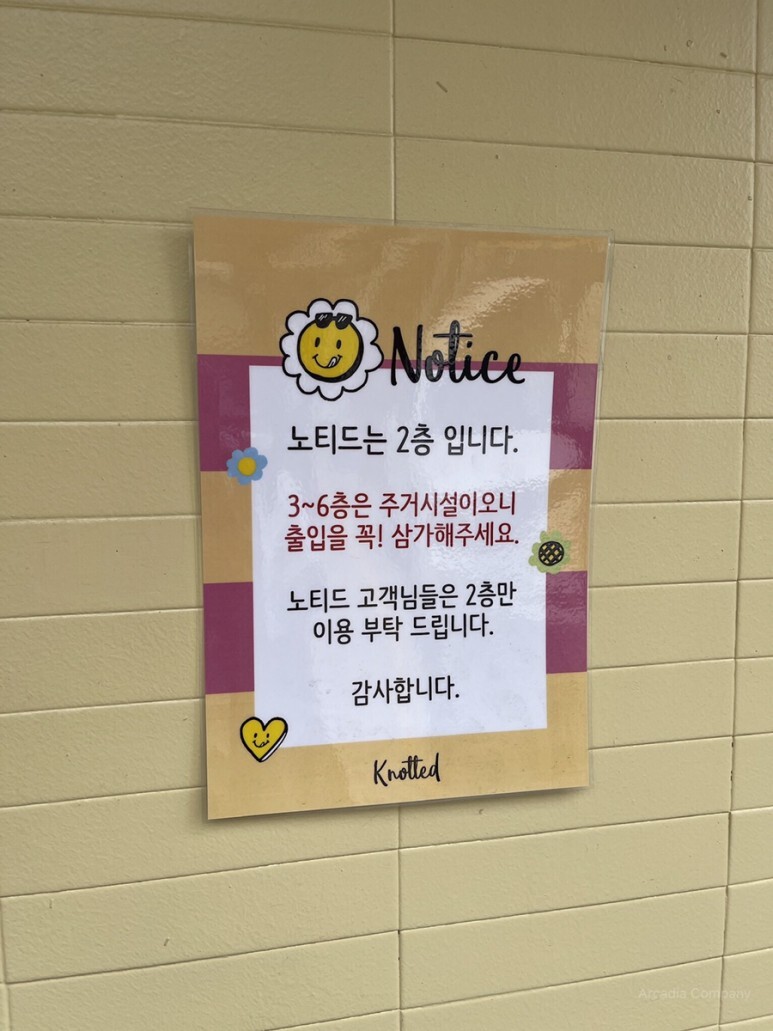 Notice
노티드는 2층 입니다.
3~6층은 주거시설이오니
출입을 꼭! 삼가해주세요.
노티드 고객님들은 2층만
이용 부탁 드립니다.
감사합니다.
Knotted
Arcadia Company